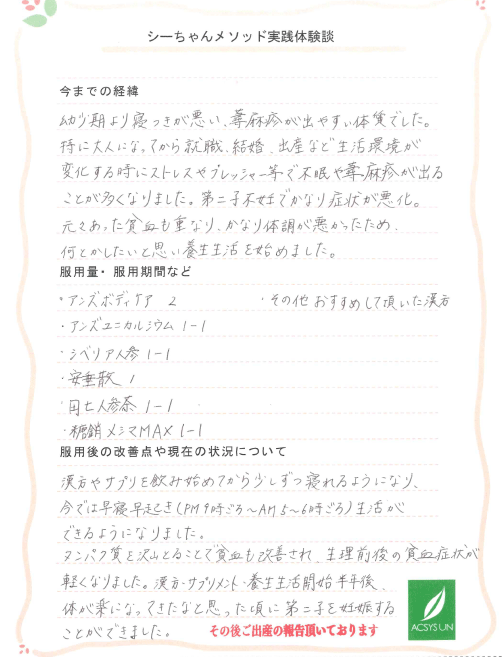 シーちゃんメソッド実践体験談
今までの経緯
幼少期より寝つきが悪い、蕁麻疹が出やすい体質でした。
特に大人になってから就職、結婚、出産など生活環境が
変化する時にストレスやプレッシャー等で不眠や蕁麻疹が出る
ことが多くなりました。第二子不妊でかなり症状が悪化。
元々あった貧血も重なり、かなり体調が悪かったため、
何とかしたいと思い養生生活を始めました。
服用量・服用期間など
・アンズボディケア 2
・その他 おすすめして頂いた漢方
・アンズユニカルシウム 1-1
・シベリア人参 1-1
・安垂散 1
・田七人参茶 1-1
・糖鎖メシマMAX 1-1
服用後の改善点や現在の状況について
漢方やサプリを飲み始めてから少しずつ寝れるようになり、
今では早寝早起き(PM9時ごろ〜AM5〜6時ごろ)生活が
できるようになりました。
タンパク質を沢山とることで貧血も改善され、生理前後の貧血症状が
軽くなりました。漢方・サプリメント・養生生活開始半年後、
体が楽になってきたなと思った頃に第二子を妊娠する
ことができました。
その後ご出産の報告頂いております
ACSYSUN